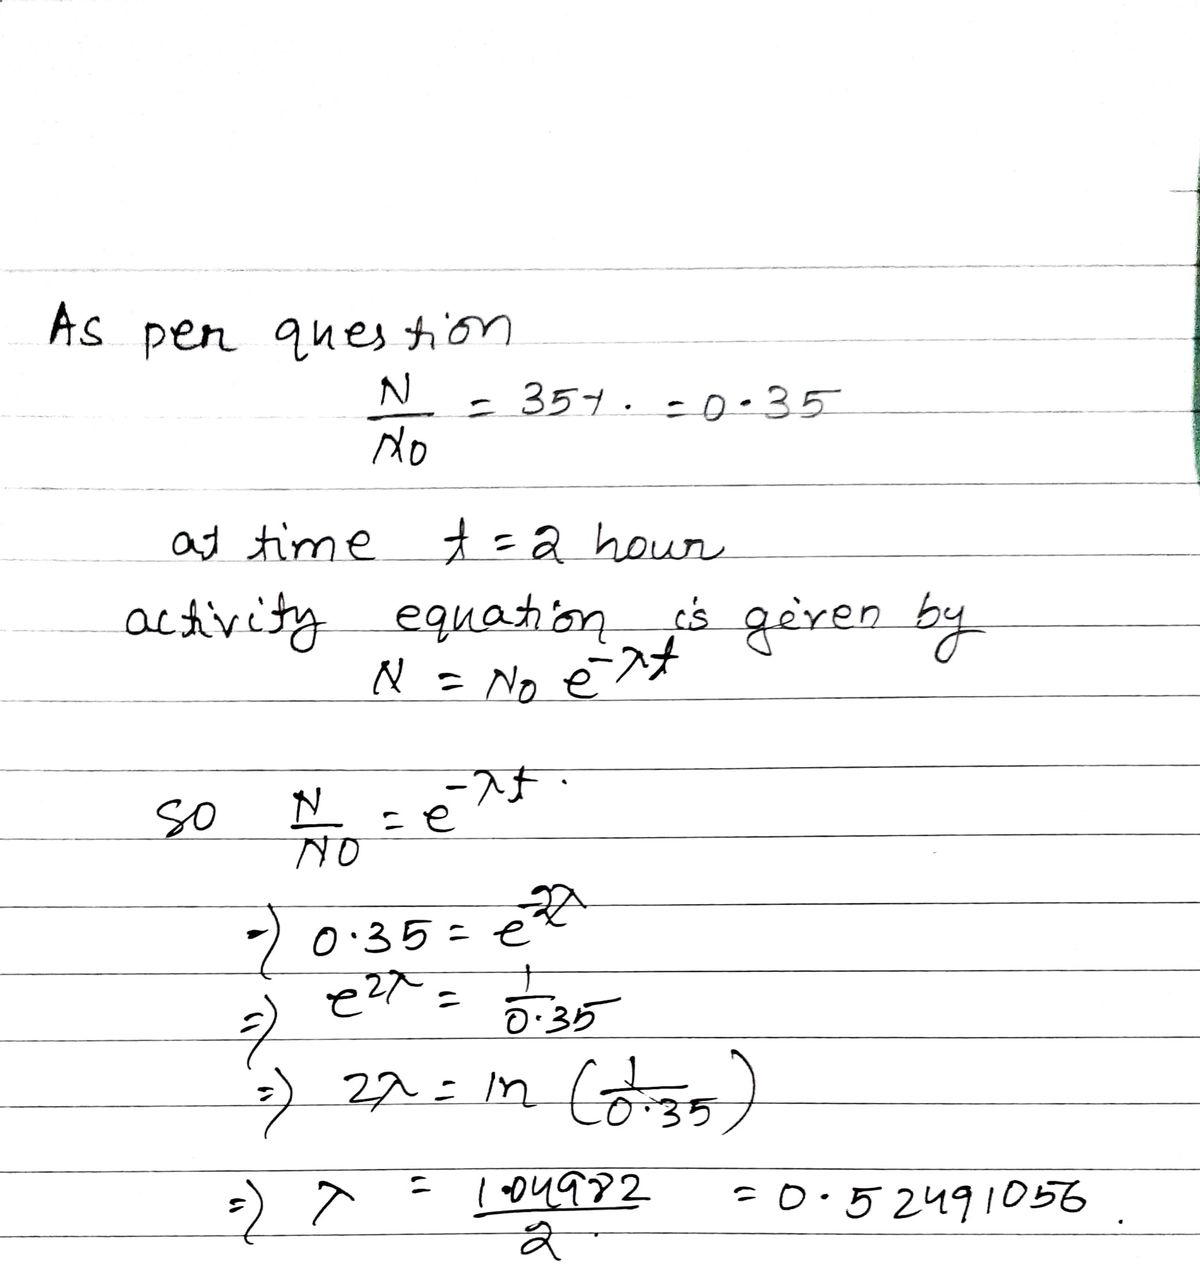 As per question
N/N0 = 35% = 0.35
at time t = 2 hour
activity equation is given by
N = N0 e^-λt
so N/N0 = e^-λt.
=) 0.35 = e^-2λ
=) e^2λ = 1/0.35
=) 2λ = ln (1/0.35)
=) λ = 1.04982/2 = 0.52491056.